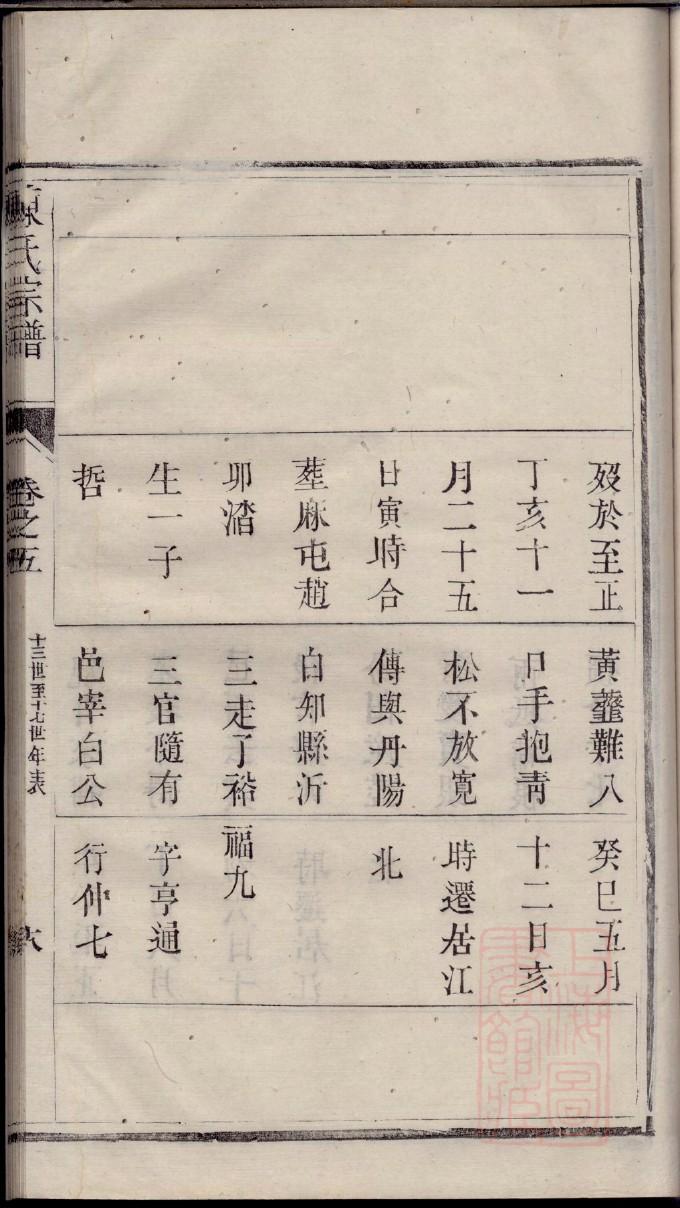 歿於至正
丁亥十一
月二十五
日寅時合
塟麻屯趙
卯
生一子
哲
黃虀難入
口手抱靑
松不放寬
傳與丹陽
白知縣沂
三走了裕
三官隨有
邑宰白公
癸巳五月
十二日亥
時遷居江
北
福九
字亨通
行仲七
氏宗譜
卷之五
十三世至十七世年表
六
上海圖書館藏